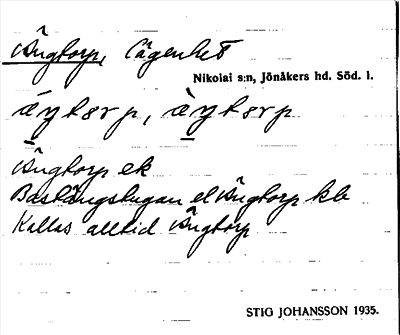 Ängtorp, Lägenhet
Nikolai s:n, Jönåkers hd. Söd. l.
Ängtorp ek
Bastängstugan el Ängtorp kb
Kallas alltid Ängtorp
STIG JOHANSSON 1935.